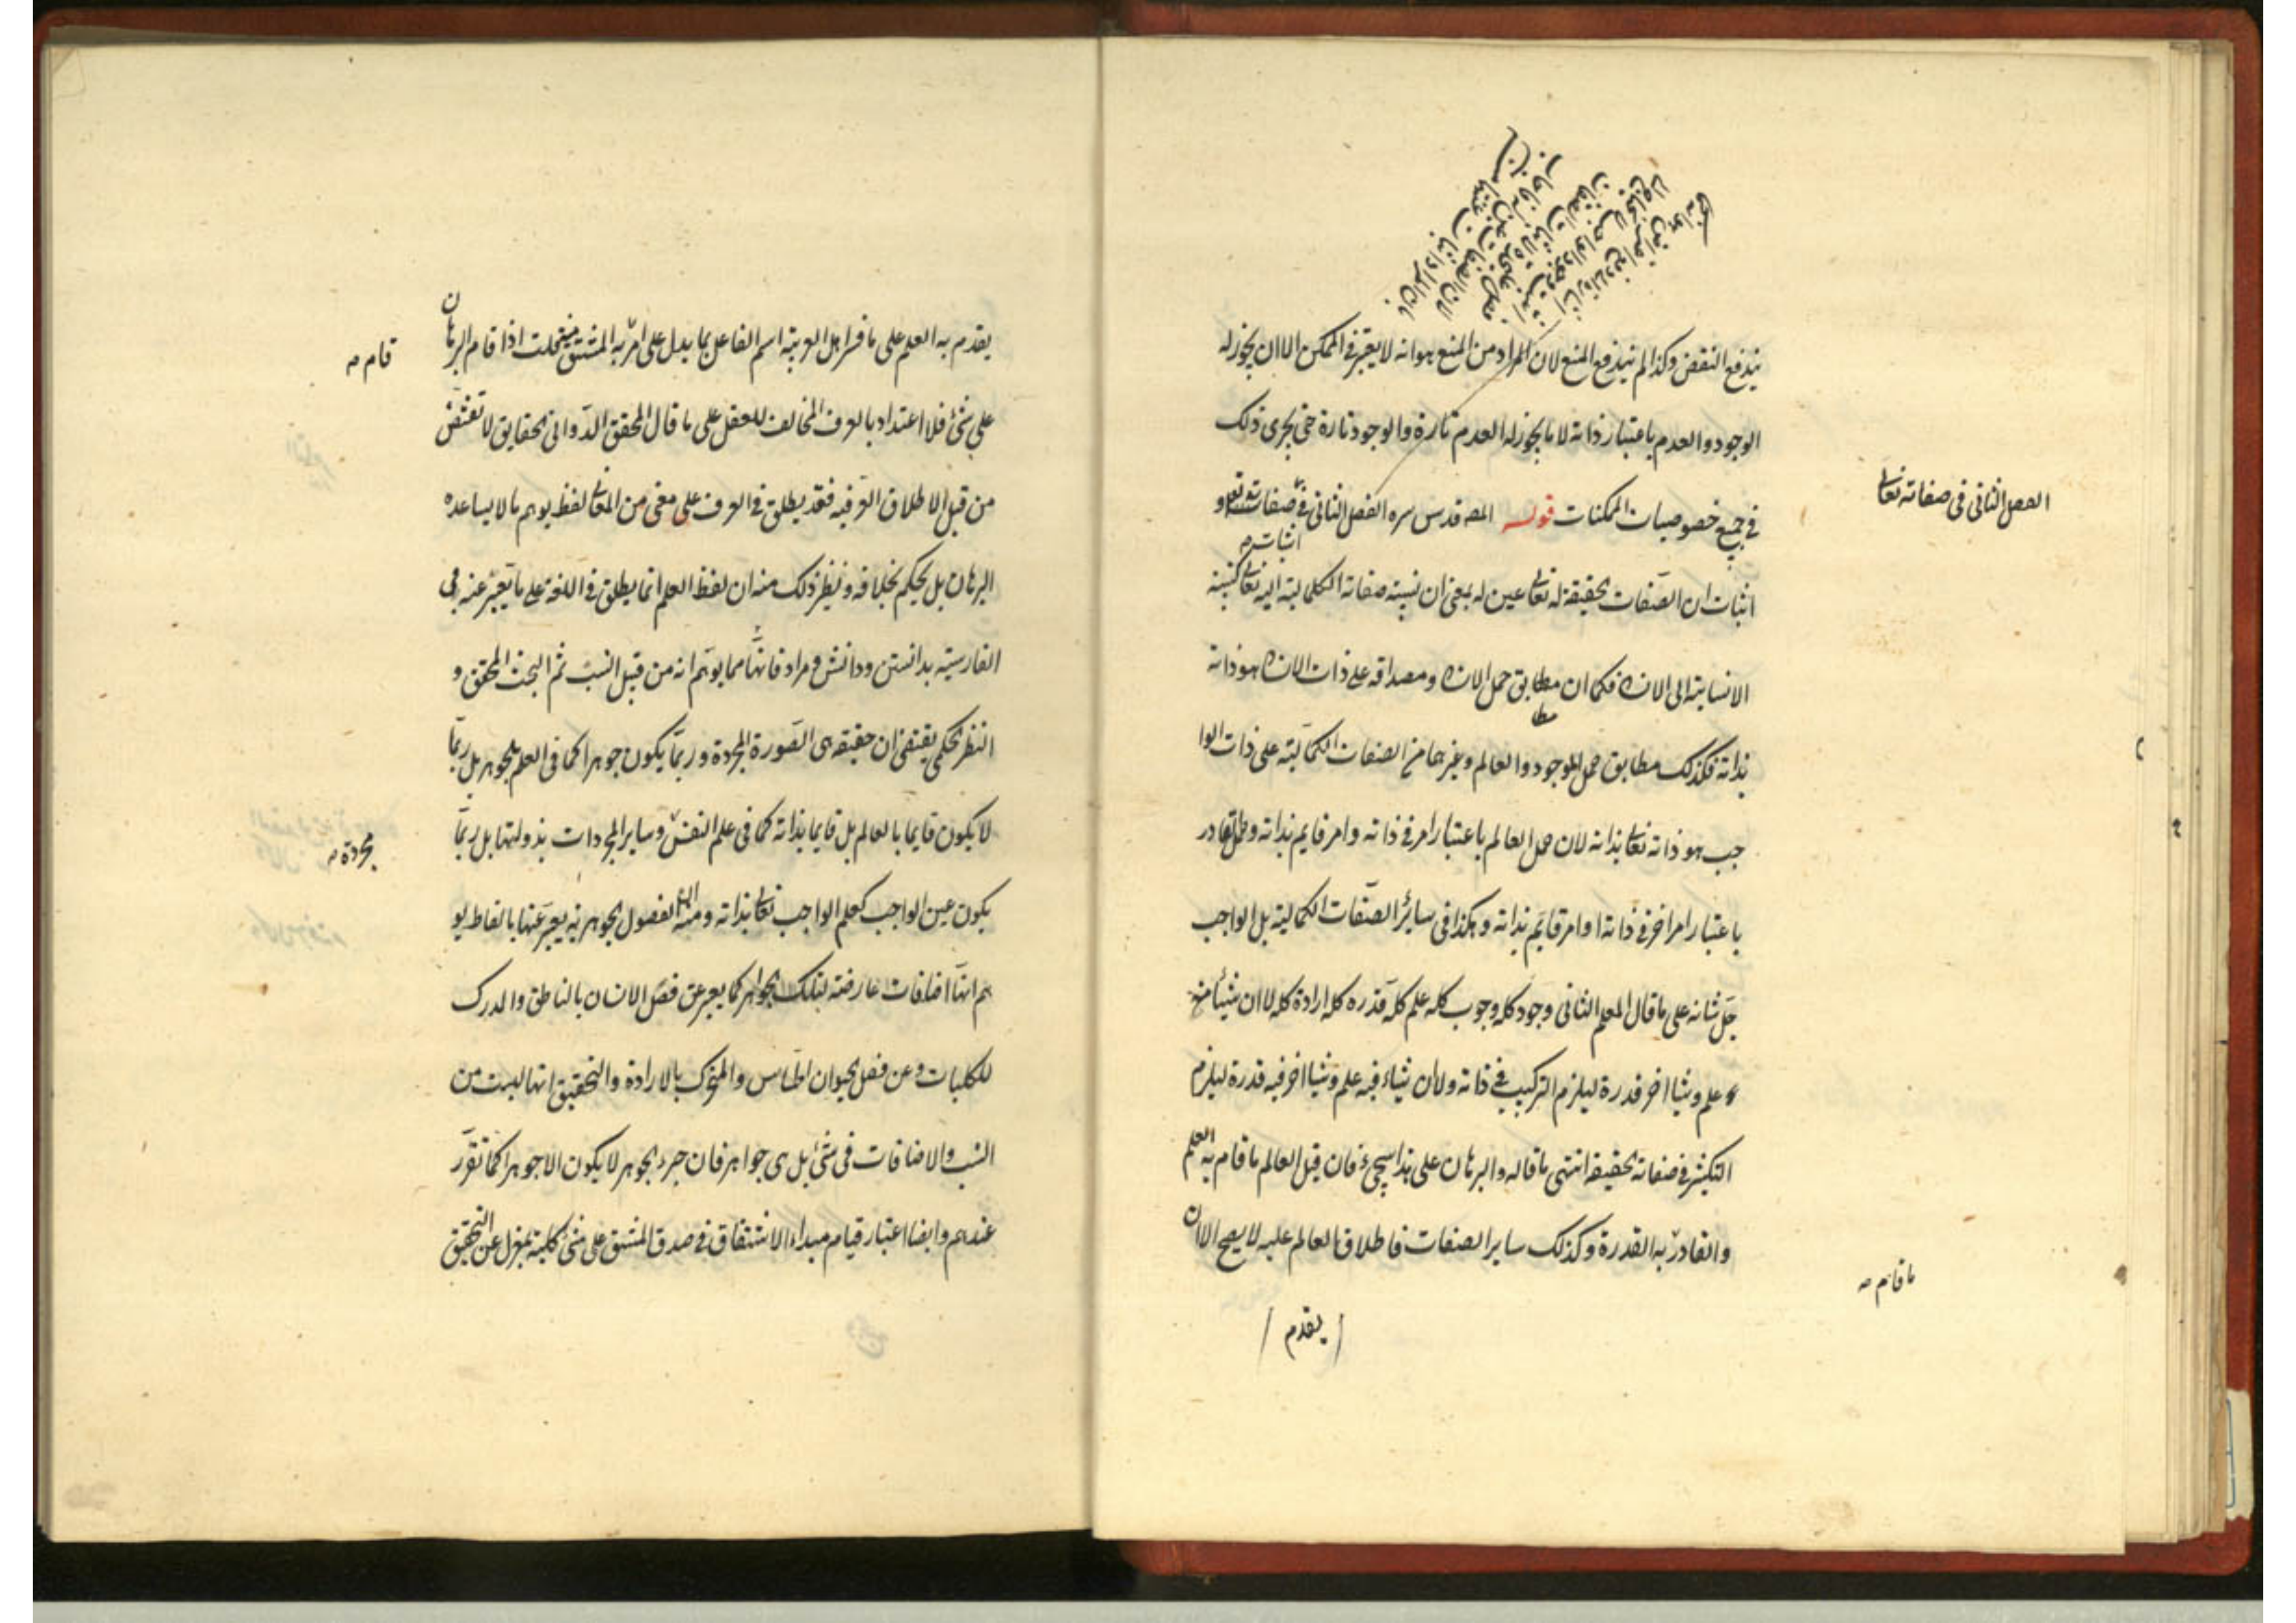 يندفع النقض وكذا لم يندفع المنع لان المراد من المنع هو انه لا يعتبر في الممكن الا ان يجوز له
الوجود والعدم باعتبار ذاته لا ما يجوز له العدم تارة والوجود تارة حتى يجرى ذلك
في جميع خصوصيات الممكنات قوله المص قدس سره الفصل الثاني في صفاته تعالى و
الفصل الثاني في صفاته تعالى
اثبات ص
اثبات ان الصفات الحقيقة له تعالى عين له بمعنى ان نسبة صفاته الكمالية اليه تعالى كنسبة
الانسانية الى الانسان فكما ان مطابق حمل الانسان ومصداقه على ذات الانسان هو ذاته
مطا
بذاته فكذلك مطابق حمل الموجود والعالم وغيرهما من الصفات الكمالية على ذات الوا
جب هو ذاته تعالى بذاته لان حمل العالم باعتبار امر في ذاته وامر قايم بذاته وحمل القادر
باعتبار امر اخر في ذاته او امر قايم بذاته وهكذا في سائر الصفات الكمالية بل الواجب
جل شانه على ما قال المعلم الثاني وجود كله وجوب كله علم كله قدره كله ارادة كله لا ان شيئا منه
علم وشيئا اخر قدرة ليلزم التركيب في ذاته ولا ان شيئاء فيه علم وشيئا اخر فيه قدرة ليلزم
التكثر في صفاته الحقيقة انتهى ما قاله والبرهان على هذا سيجيء فان قيل العالم ما قام به العلم
والقادر به القدرة وكذلك ساير الصفات فاطلاق العالم عليه لا يصح الا ان
ما قام ص
يقدم
يقدم به العلم على ما فسر اهل العربية اسم الفاعل بما يدل على امر به المشتق منه قلت اذا قام البرهان
قام ص
على شئ فلا اعتداد بالعرف المخالف للعقل على ما قال المحقق الدواني الحقايق لا تقتنص
من قبل الاطلاق العرفيه فقد يطلق في العرف على معنى من المعاني لفظ يوهم ما لا يساعده
البرهان بل يحكم بخلافه ونظير ذلك منه ان لفظ العلم انما يطلق في اللغة على ما يعبر عنه في
الفارسية بدانستن ودانش ومرادفاتهما مما يوهم انه من قبيل النسب ثم البحث المحقق و
النظر الحكمى يقتضى ان حقيقته هى الصورة المجردة وربما يكون جوهرا كما في العلم بالجوهر بل ربما
لا يكون قايما بالعالم بل قايما بذاته كما في علم النفس وساير المجردات بذواتها بل ربما
مجردة ص
يكون عين الواجب كعلم الواجب تعالى بذاته ومنه الفصول الجوهرية يعبر عنها بالفاظ يو
هم انها اضافات عارضة لتلك الجواهر كما يعبر عن فصل الانسان بالناطق والمدرك
للكليات وعن فصل الحيوان الحساس والمتحرك بالارادة والتحقيق انها ليست من
النسب والاضافات في شئ بل هى جواهر فان جزء الجوهر لا يكون الا جوهرا كما تقرر
عندهم وايضا اعتبار قيام مبداء الاشتقاق في صدق المشتق على شئ كلية بمعزل عن التحقيق